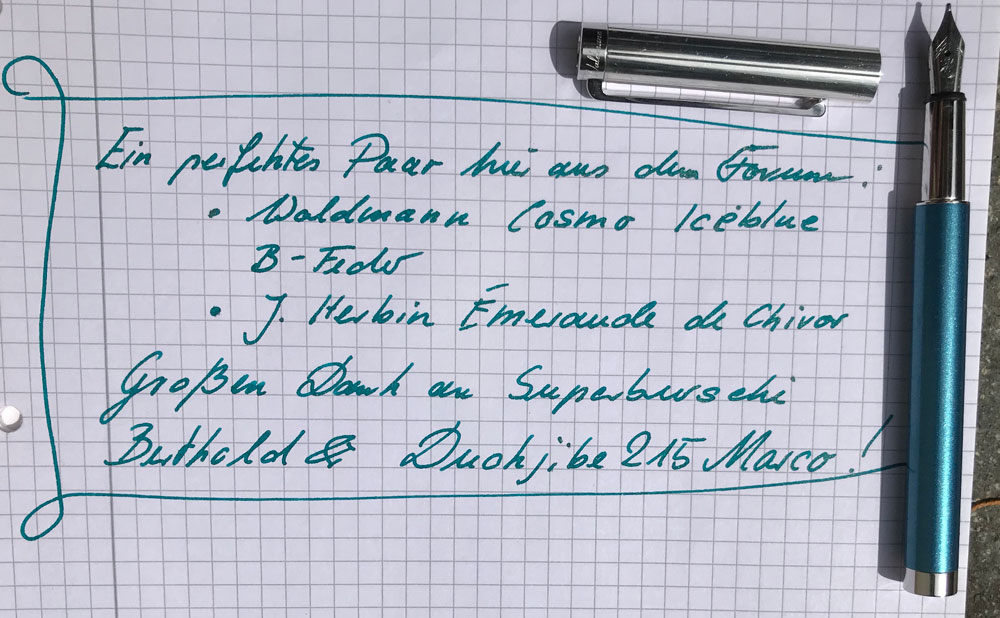 Ein perfektes Paar hier aus dem Forum:
• Waldmann Cosmo Iceblue
B-Feder
• J. Herbin Émeraude de Chivor
Großen Dank an Superburschi
Berthold & Duckjibe 215 Marco!